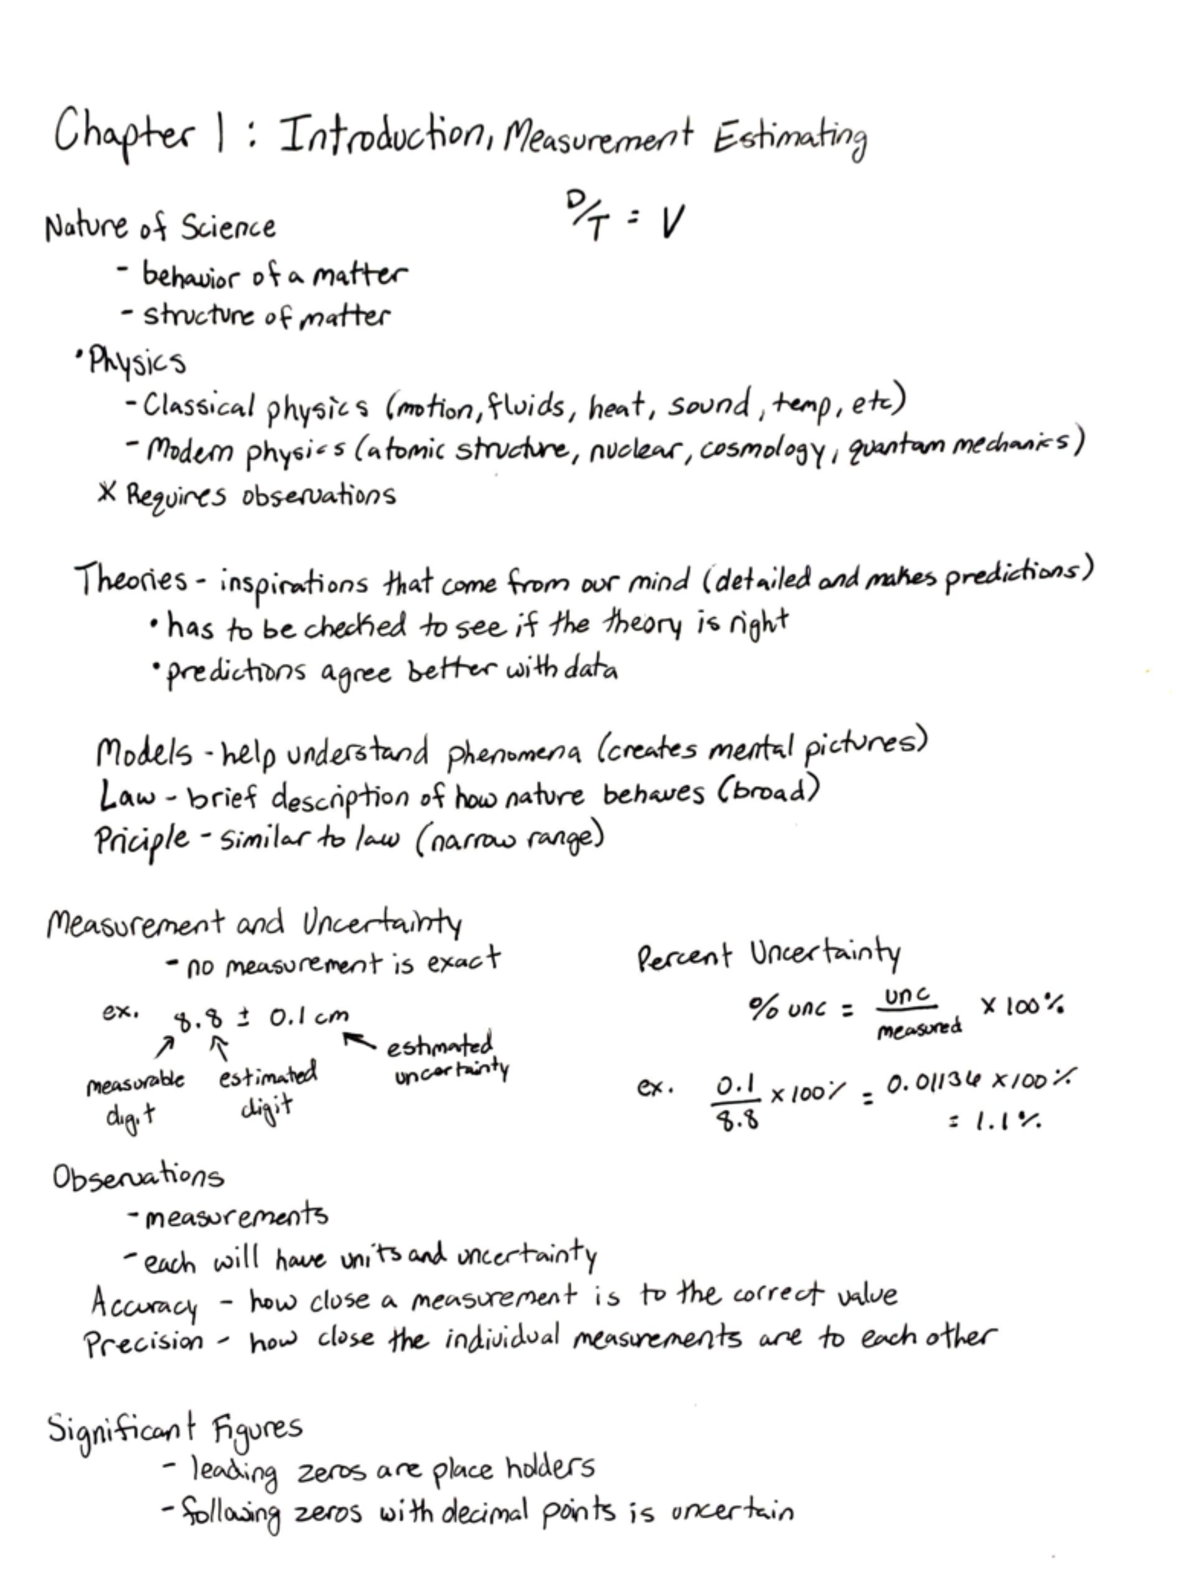 Chapter 1 : Introduction, Measurement Estimating
D/T = V
Nature of Science
- behavior of a matter
- structure of matter
• Physics
- Classical physics (motion, fluids, heat, sound, temp, etc)
- Modern physics (atomic structure, nuclear, cosmology, quantam mechanics)
* Requires observations
Theories - inspirations that come from our mind (detailed and makes predictions)
• has to be checked to see if the theory is right
• predictions agree better with data
Models - help understand phenomena (creates mental pictures)
Law - brief description of how nature behaves (broad)
Priciple - similar to law (narrow range)
Measurement and Uncertainty
- no measurement is exact
ex. 8.8 ± 0.1 cm
measurable digit
estimated digit
estimated uncertainty
Percent Uncertainty
% unc = unc / measured × 100%
ex. 0.1 / 8.8 × 100% = 0.01136 × 100%
= 1.1%
Observations
- measurements
- each will have units and uncertainty
Accuracy - how close a measurement is to the correct value
Precision - how close the individual measurements are to each other
Significant Figures
- leading zeros are place holders
- following zeros with decimal points is uncertain